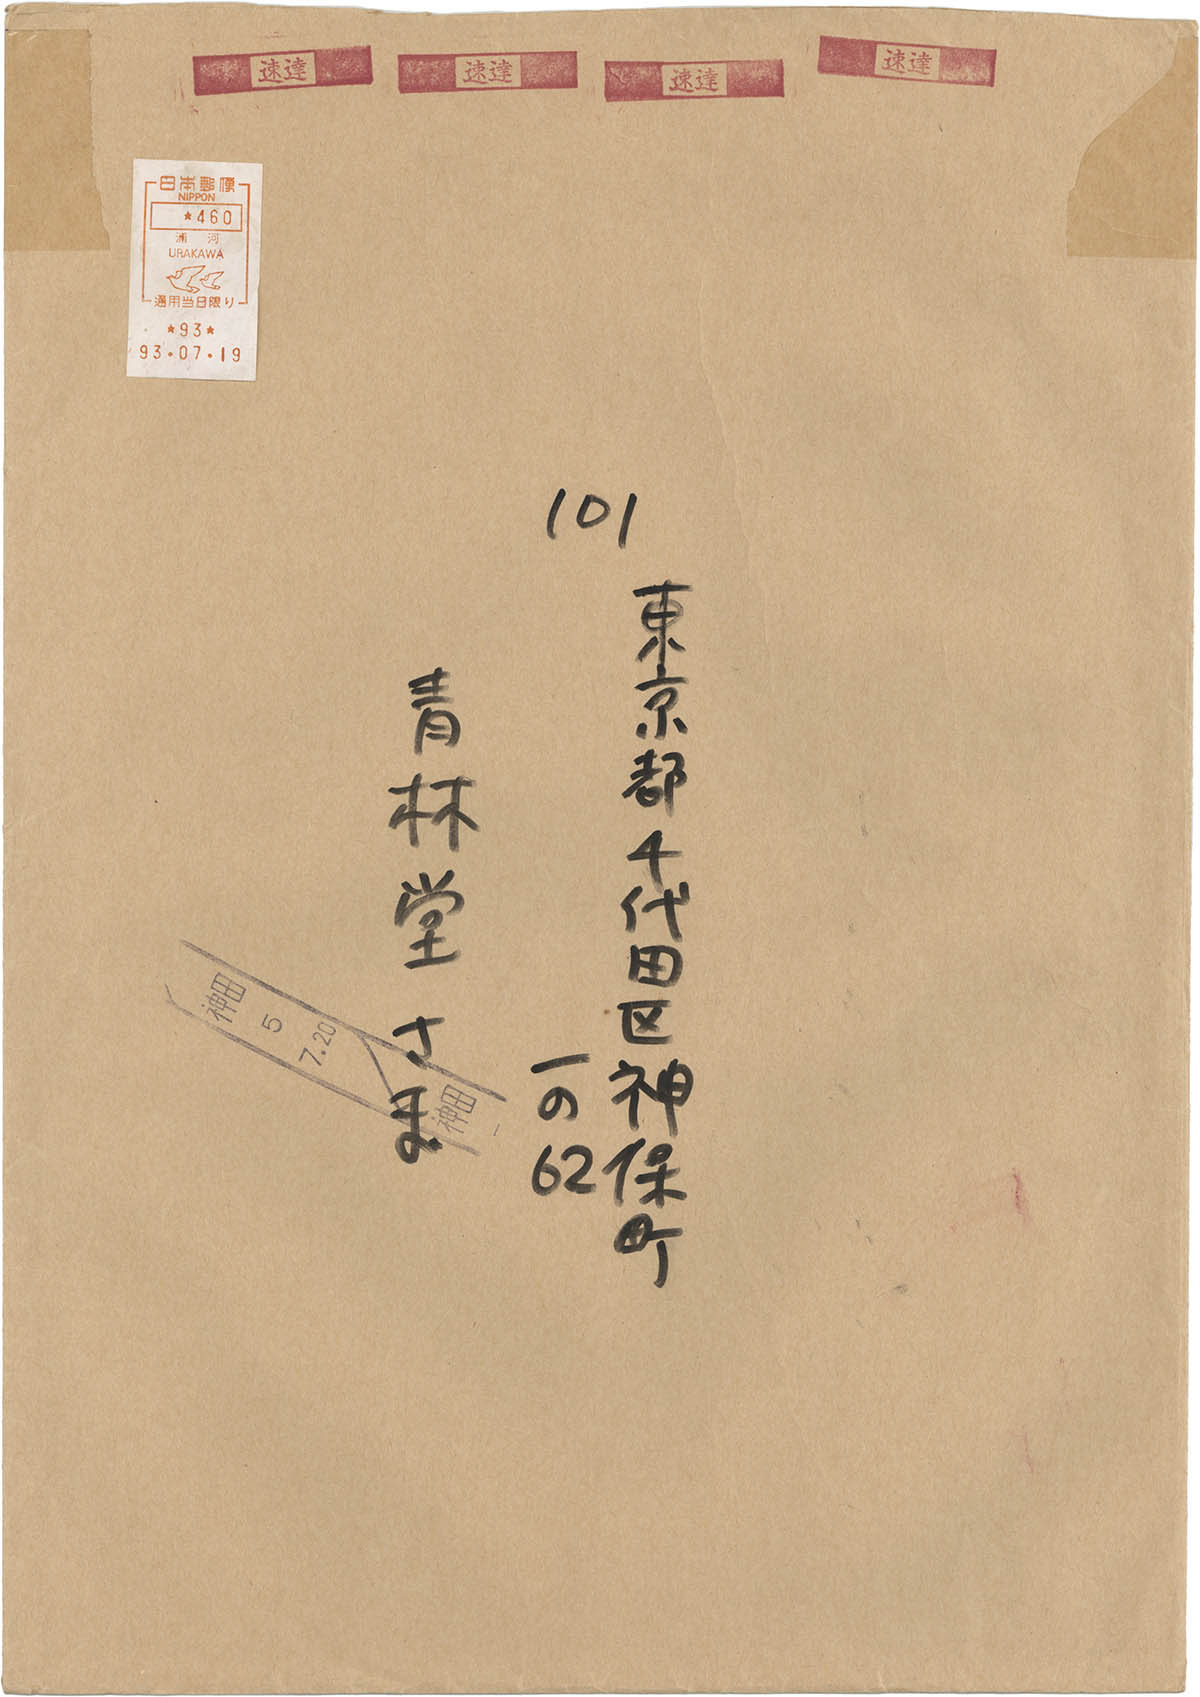 速達 速達 速達 速達
日本郵便
NIPPON
*460
浦河
URAKAWA
通用当日限り
*93*
93.07.19
101
東京都千代田区神保町
一の62
青林堂さま
神田
5
7.20
神田